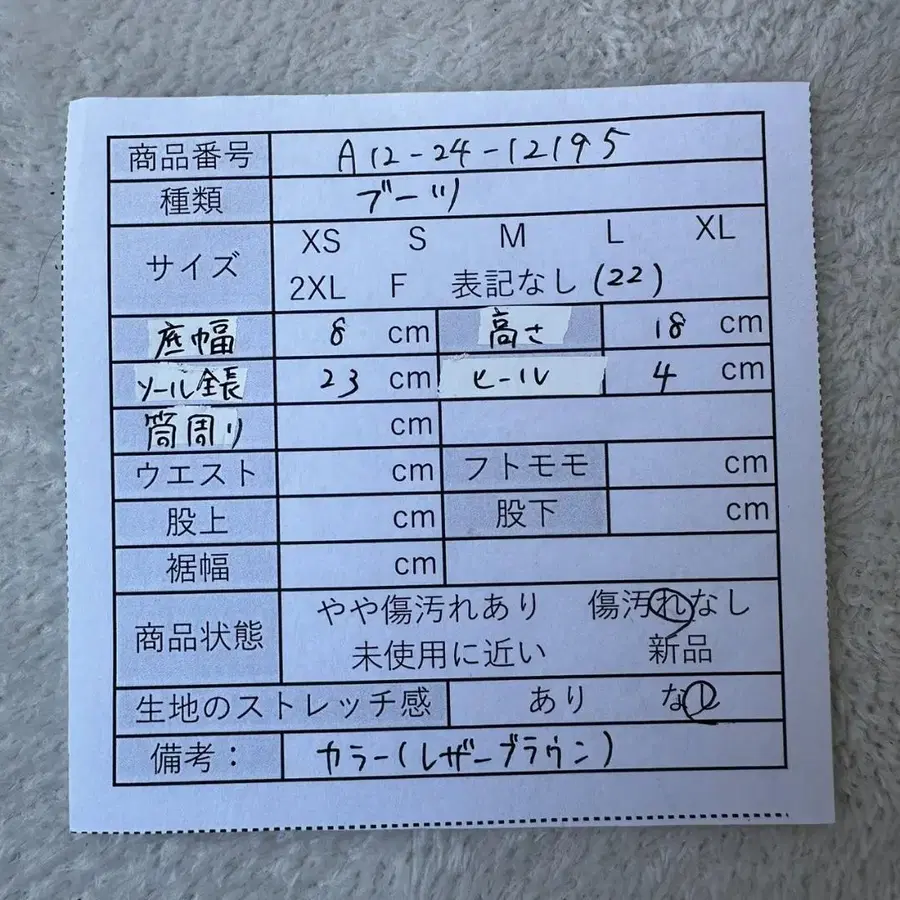 商品番号 A12-24-12195
種類 ブーツ
サイズ XS S M L XL
2XL F 表記なし (22)
底幅 8 cm 高さ 18 cm
ソール全長 23 cm ヒール 4 cm
筒周り cm
ウエスト cm フトモモ cm
股上 cm 股下 cm
裾幅 cm
商品状態 やや傷汚れあり 傷汚れなし
未使用に近い 新品
生地のストレッチ感 あり なし
備考： カラー(レザーブラウン)